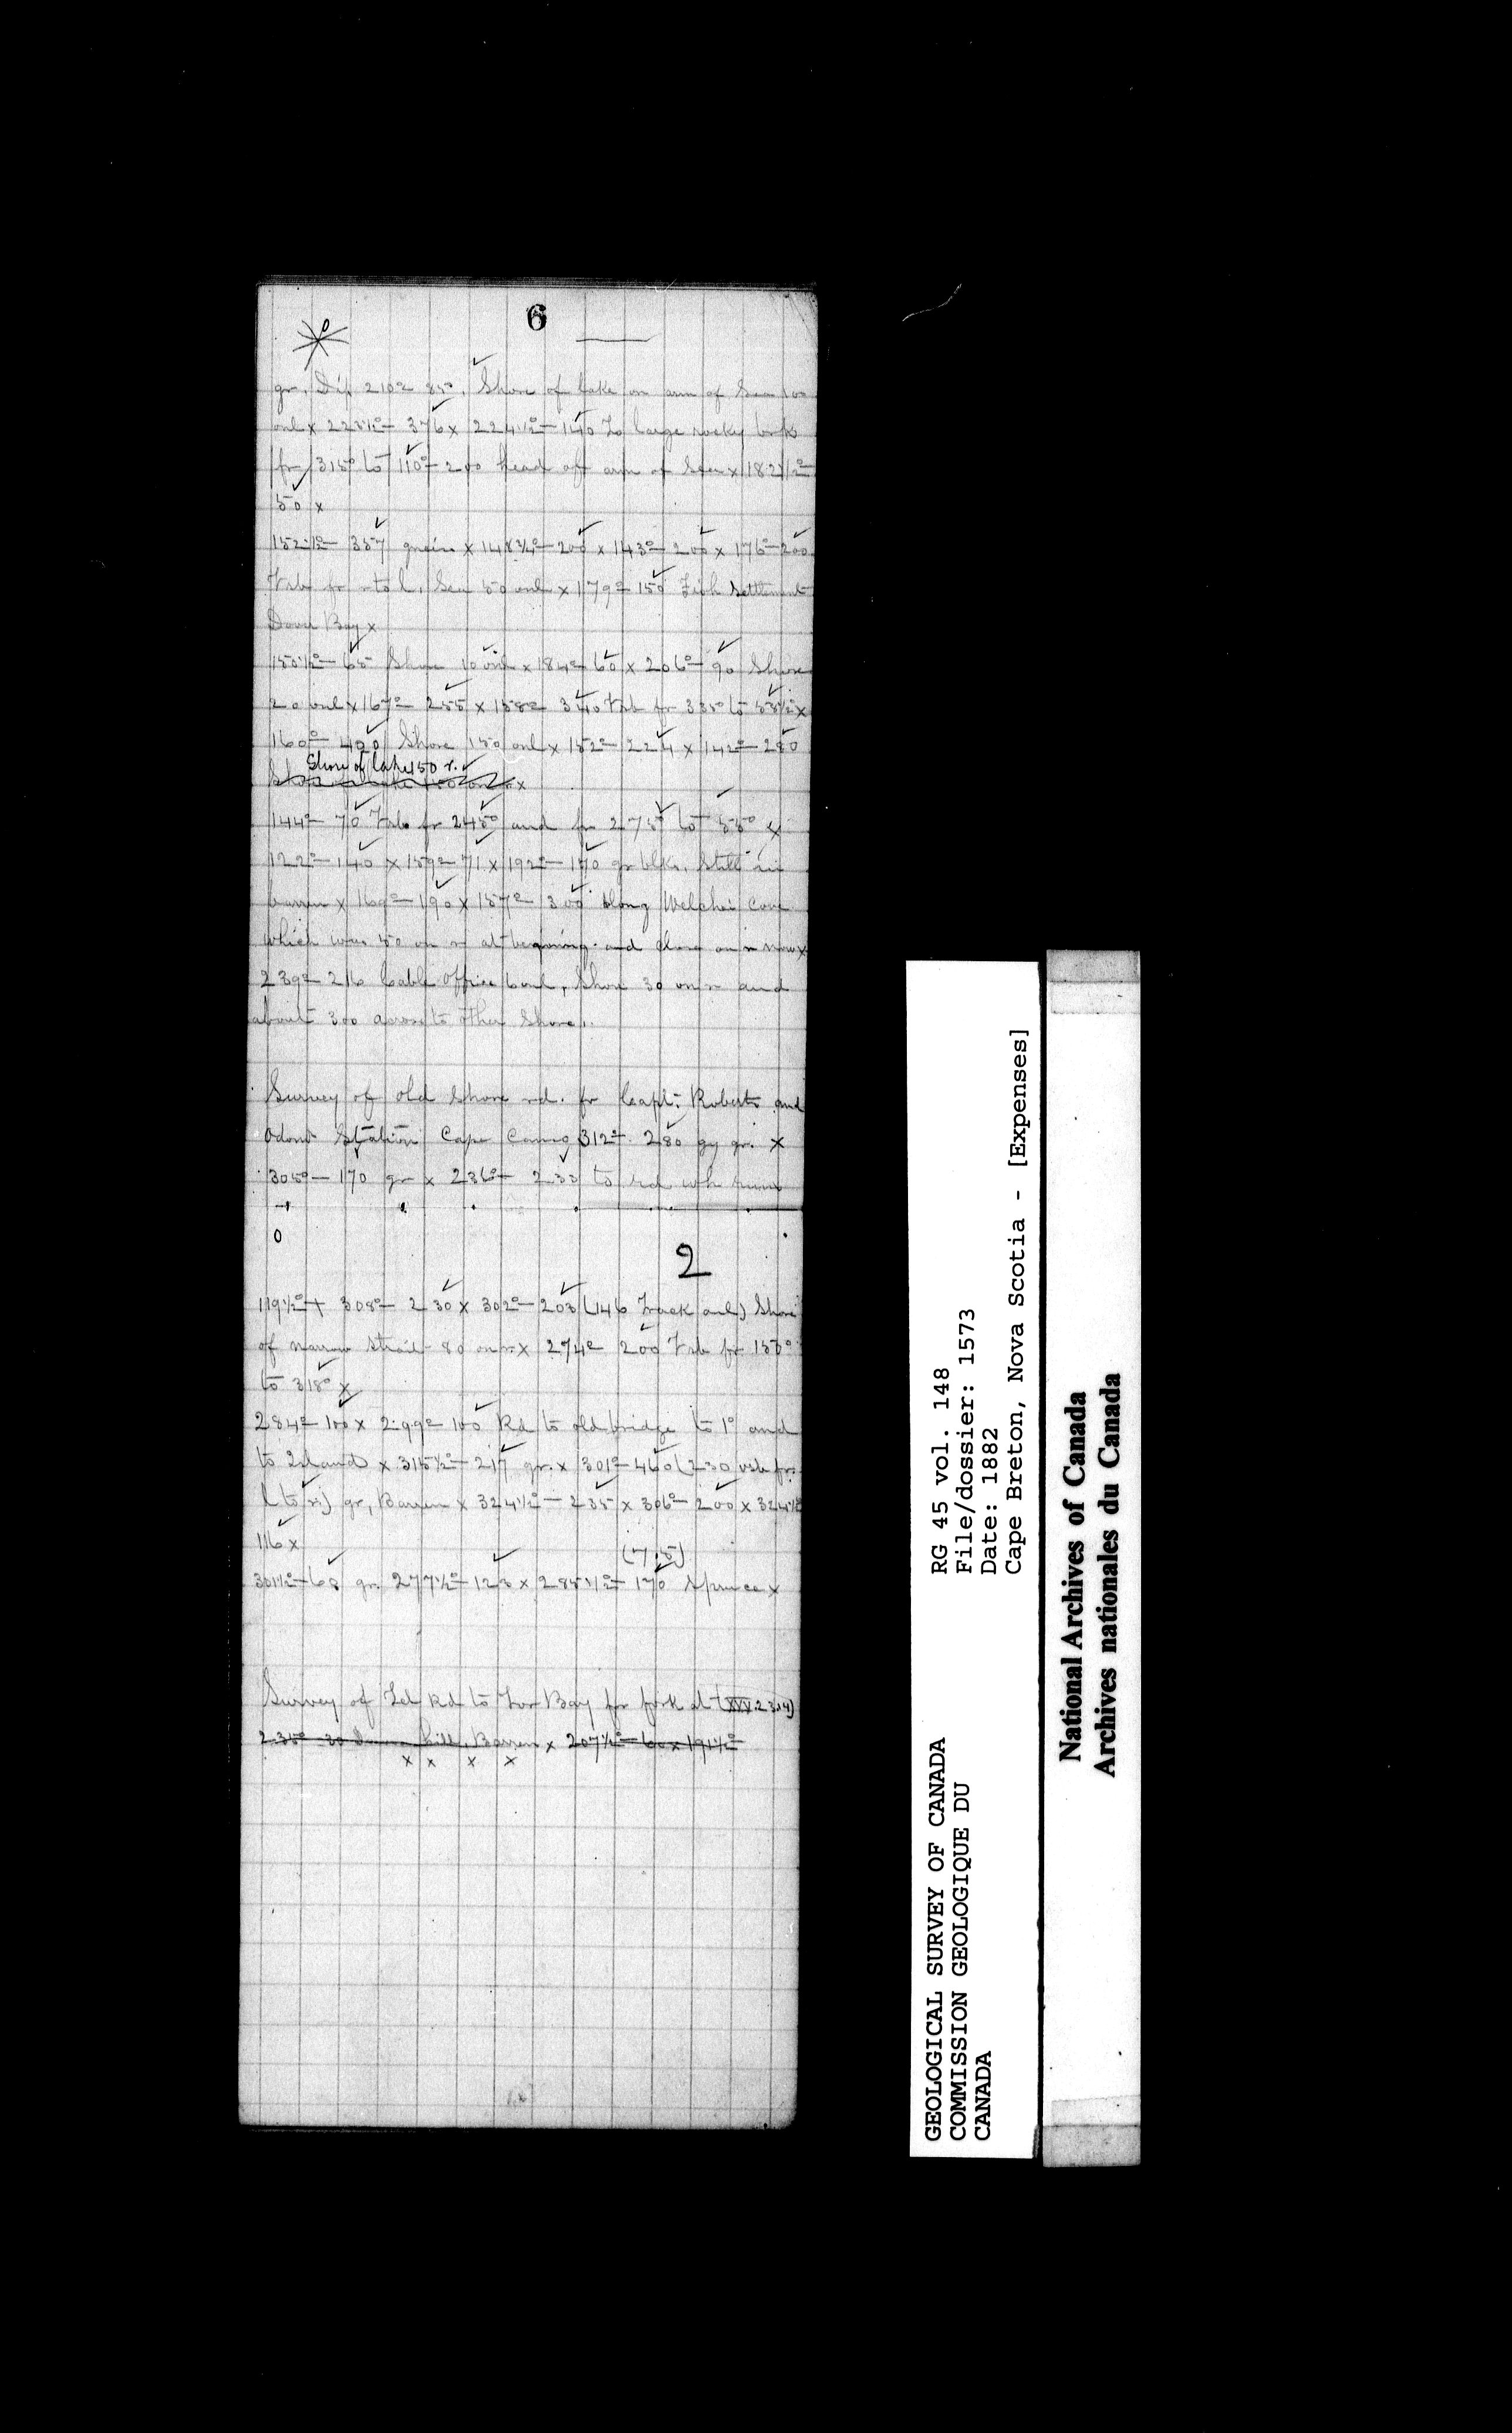 6
gr. Dip 210° 85°. Shore of lake on arm of Sea 100
onl x 223½°- 376 x 224½°- 140 To large rocky brk
fr 315° to 110°- 200 head of arm of Sea x 182½°-
50 x
152½°- 357 x 148¾°- 200 x 143°- 200 x 176°- 200
fr r to l. Sea 50 onl x 179°- 150 Fish Settlement
Dover Bay x
150½°- 65 Shore 10 onl x 184°- 60 x 206°- 90 Shore
20 onl x 167°- 255 x 158°- 340 fr 335° to 53½° x
160°- 400 Shore 150 onl x 152°- 224 x 142°- 280
Shore of lake 150 r.
144°- 70 fr 245° and fr 275° to 55° x
122°- 140 x 159°- 71 x 192°- 170 gr blks. Still in
barren x 169°- 190 x 157°- 300 along Cove
which was 50 on r at begining and close on r now x
239°- 216 Cable Office onl, Shore 30 on r and
about 300 across to other Shore.
Survey of old Shore rd. fr Capt. Roberts and
Station Cape 312°- 280 gy gr. x
305°- 170 gr x 236°- 233 to rd wh runs
0
2
119½° + 308°- 230 x 302°- 203 (146 Track onl) Shore
of narrow Strait 80 on r x 274°- 200 fr 155°
to 318° x
284°- 100 x 299°- 100 Rd to old bridge to 1° and
to Island x 315½°- 217 gr. x 301°- 460 (230 fr
l to r) gr, Barren x 324½°- 235 x 306°- 200 x 324½°
116 x
(7.15)
301½°- 68 gr. 277½°- 123 x 285½°- 170 Spruce x
Survey of Tel Rd to Tor Bay fr fork at (XVV.23.14)
235° 30 hill, Barren x 207½°- 60 x 191½°
x x x x
GEOLOGICAL SURVEY OF CANADA
COMMISSION GEOLOGIQUE DU
CANADA
RG 45 vol. 148
File/dossier: 1573
Date: 1882
Cape Breton, Nova Scotia - [Expenses]
National Archives of Canada
Archives nationales du Canada